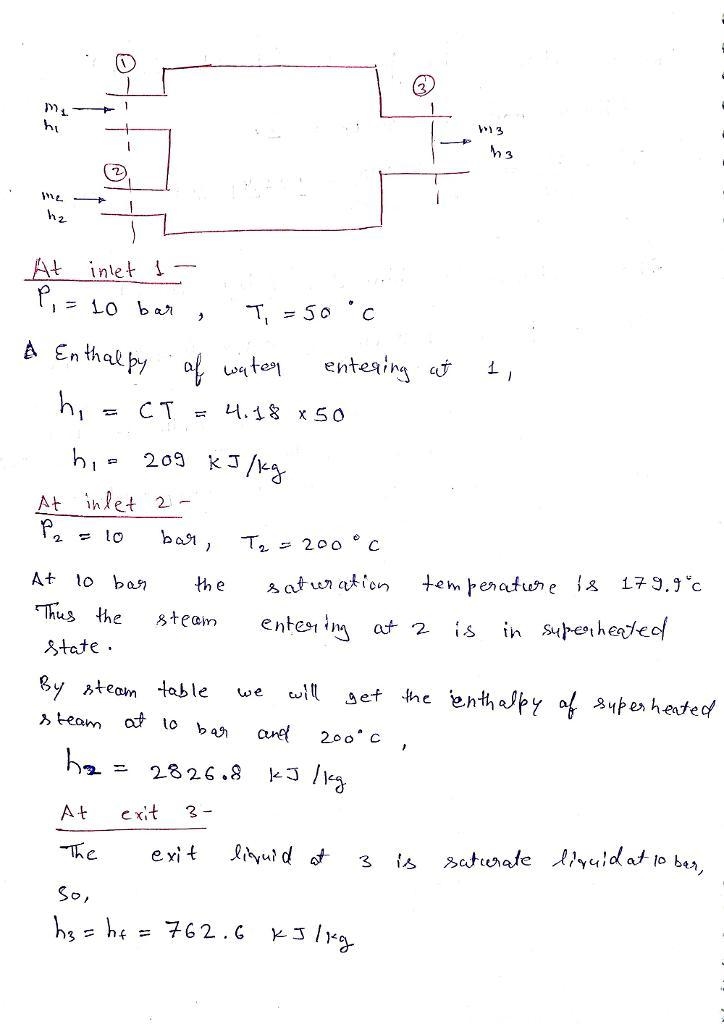 ①
m1
h1
②
m2
h2
③
m3
h3
At inlet 1 -
P1 = 10 bar , T1 = 50 °C
Enthalpy of water entering at 1,
h1 = CT = 4.18 x 50
h1 = 209 KJ/kg
At inlet 2 -
P2 = 10 bar, T2 = 200 °C
At 10 bar the saturation temperature is 179.9°C
Thus the steam entering at 2 is in superheated
state.
By steam table we will get the enthalpy of superheated
steam at 10 bar and 200°C ,
h2 = 2826.8 KJ/kg
At exit 3-
The exit liquid at 3 is saturate liquid at 10 bar,
So,
h3 = hf = 762.6 KJ/kg